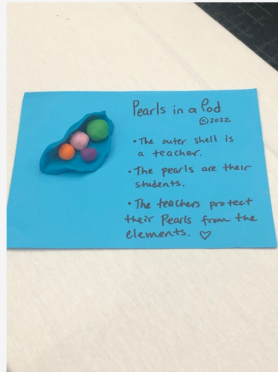 Pearls in a Pod
©2022
• The outer shell is
a teacher.
• The pearls are their
students.
• The teachers protect
their Pearls from the
elements. ♡